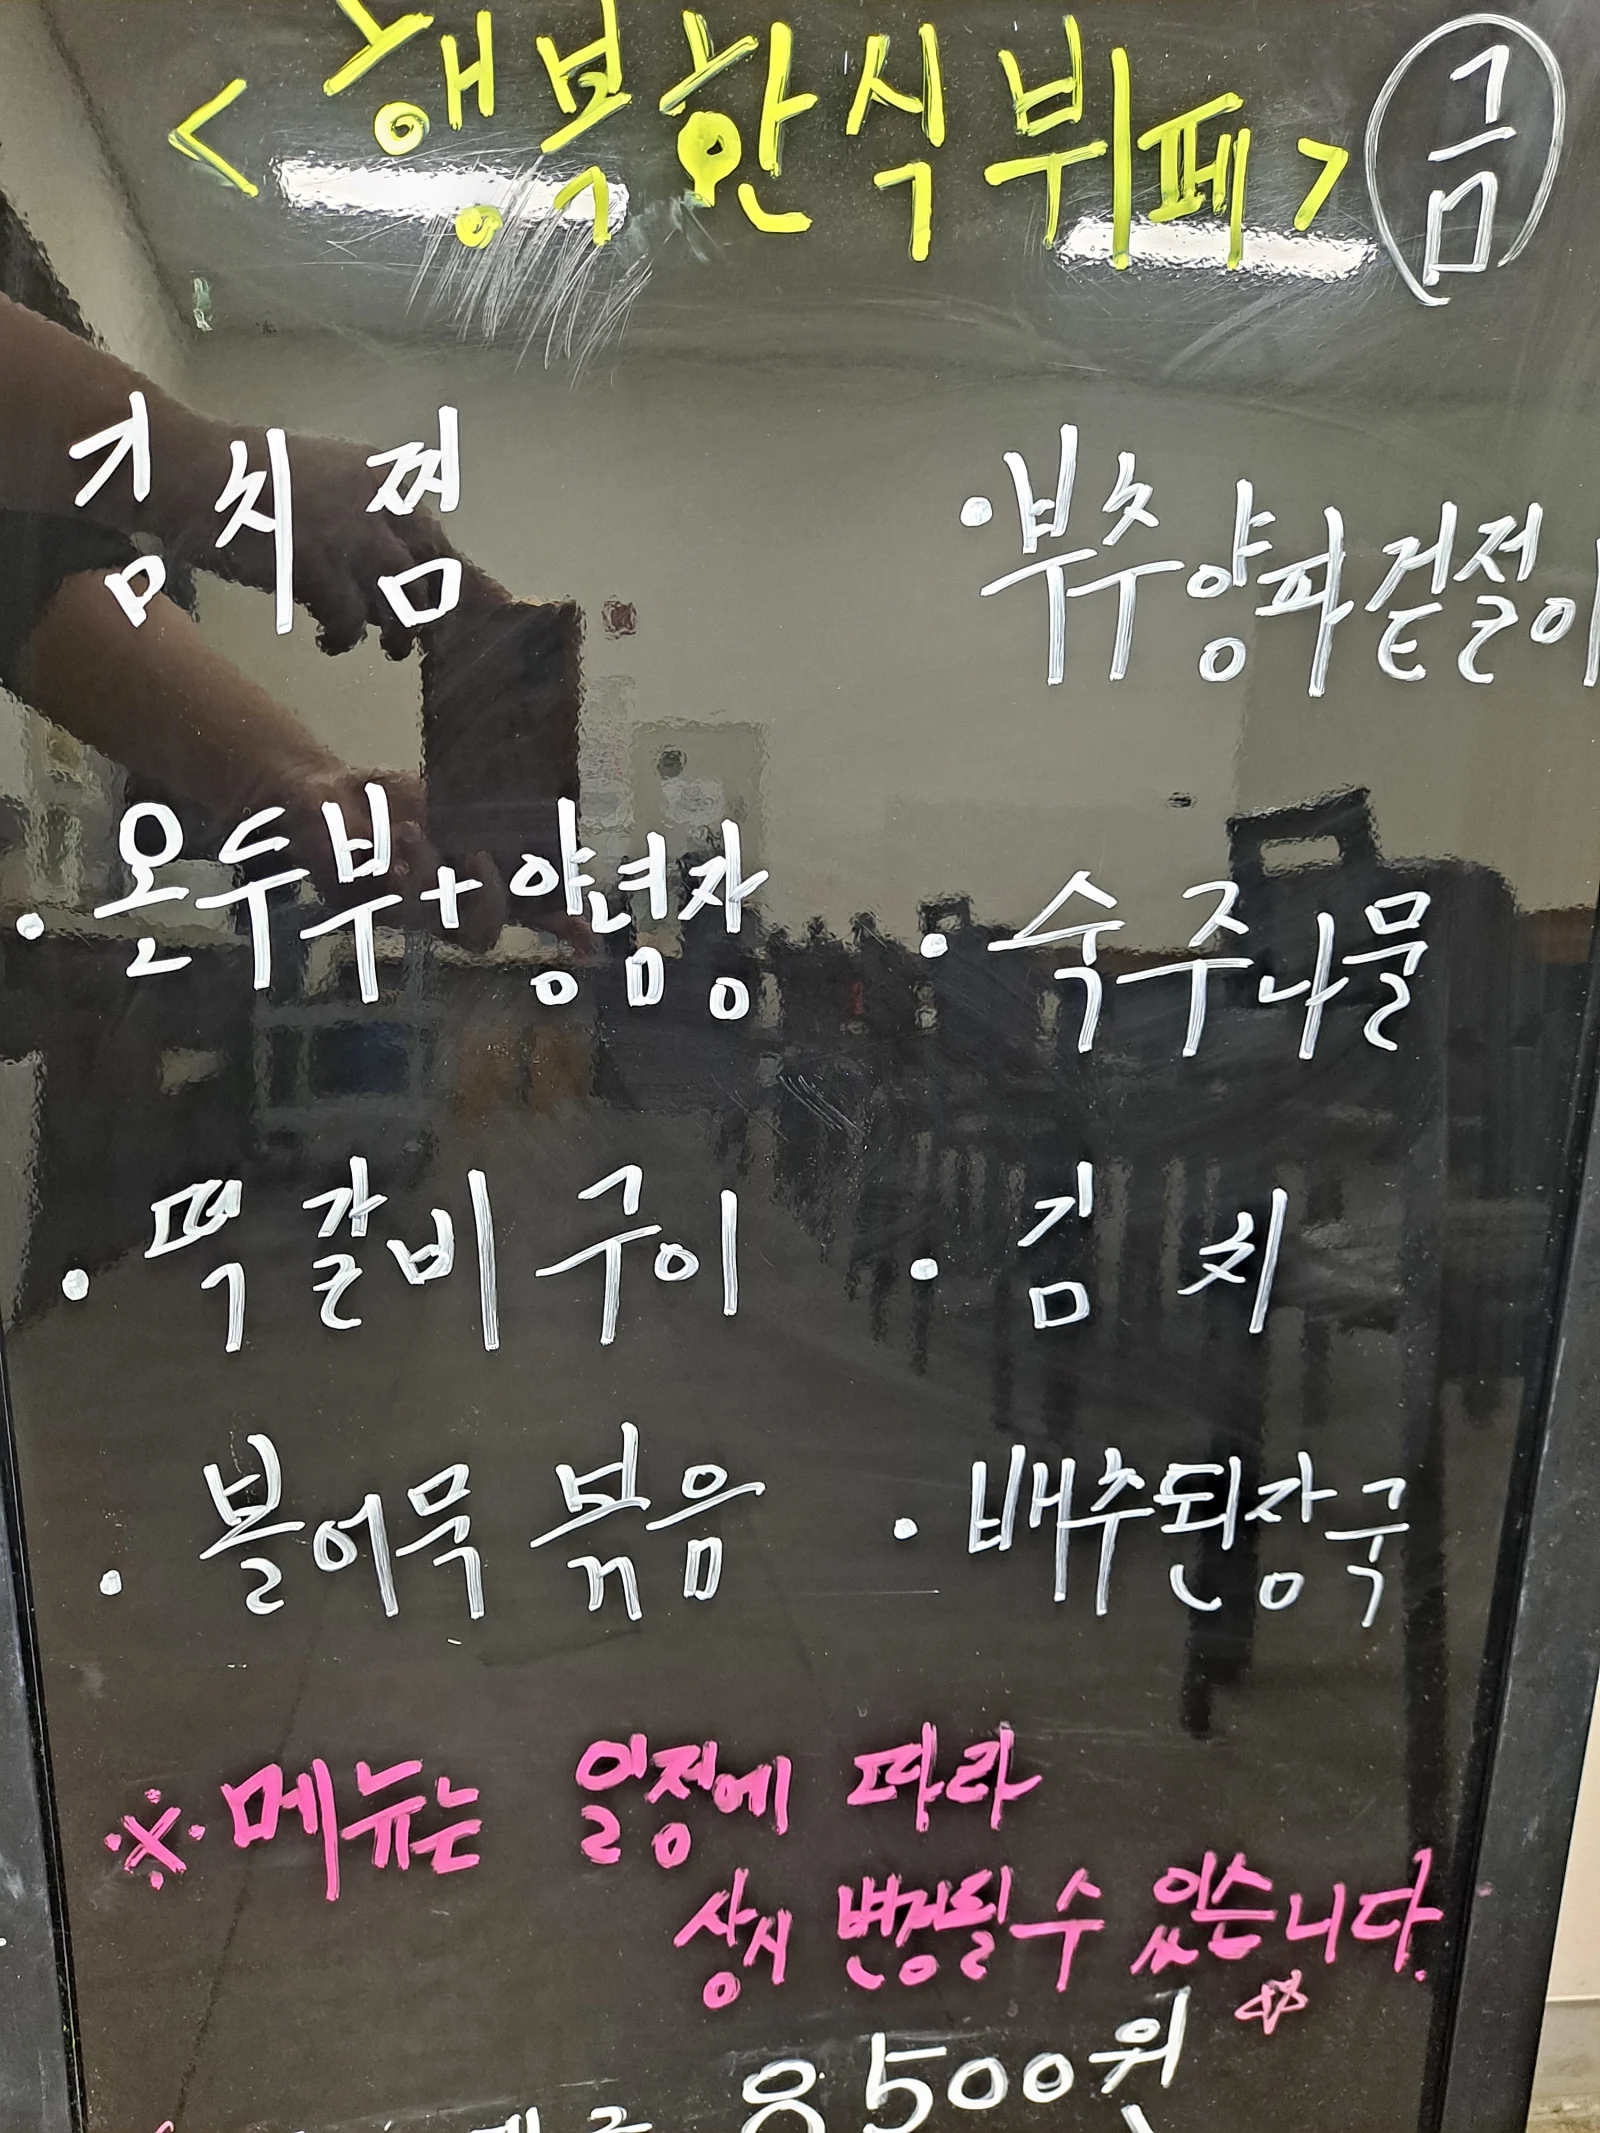 <행복한식뷔페> 금
김치찜
• 부추양파겉절이
• 온두부+양념장
• 숙주나물
• 떡갈비구이
• 김치
• 볼어묵 볶음
• 배추된장국
※메뉴는 일정에 따라
상시 변경될수 있습니다.
8500원